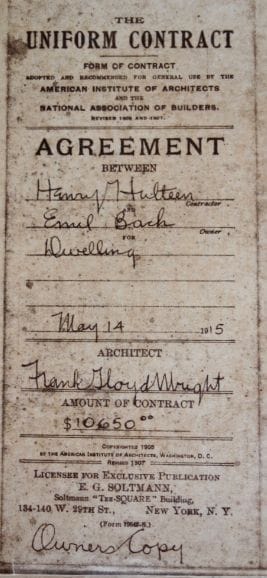 THE
UNIFORM CONTRACT
FORM OF CONTRACT
ADOPTED AND RECOMMENDED FOR GENERAL USE BY THE
AMERICAN INSTITUTE OF ARCHITECTS
AND THE
NATIONAL ASSOCIATION OF BUILDERS.
REVISED 1905 AND 1907.
AGREEMENT
BETWEEN
Henry Hulteen
Contractor
AND
Emil Bach
Owner
FOR
Dwelling
May 14 1915
ARCHITECT
Frank Lloyd Wright
AMOUNT OF CONTRACT
$10650.00
COPYRIGHTED 1905
BY THE AMERICAN INSTITUTE OF ARCHITECTS, WASHINGTON, D. C.
REVISED 1907
LICENSEE FOR EXCLUSIVE PUBLICATION
E. G. SOLTMANN,
Soltmann "TEE-SQUARE" Building,
134-140 W. 29TH ST., NEW YORK, N. Y.
(Form
Owners Copy